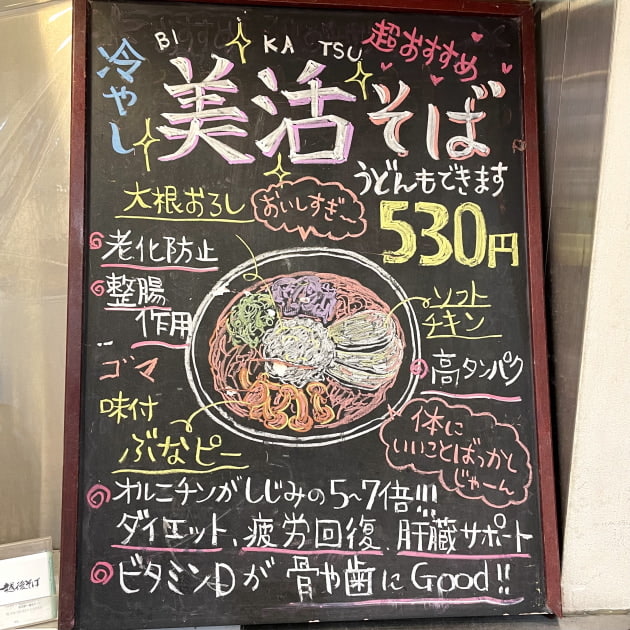 BI KA TSU
超おすすめ
冷やし
美活そば
うどんもできます
530円
大根おろし
おいしすぎ〜
老化防止
整腸
作用
ゴマ
ソフト
チキン
高タンパク
味付
ぶなピー
体に
いいことばっかし
じゃーん
オルニチンがしじみの5〜7倍!!!
ダイエット、疲労回復、肝臓サポート
ビタミンDが骨や歯にGood!!
越後そば